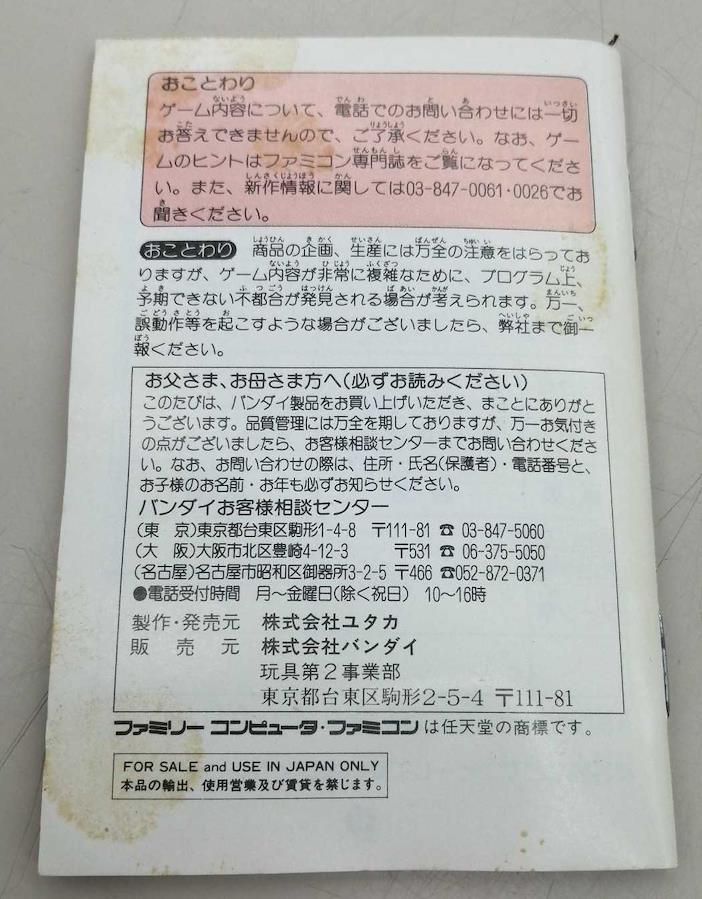 おことわり
ゲーム内容について、電話でのお問い合わせには一切
お答えできませんので、ご了承ください。なお、ゲー
ムのヒントはファミコン専門誌をご覧になってくださ
い。また、新作情報に関しては03-847-0061・0026でお
聞きください。
おことわり 商品の企画、生産には万全の注意をはらってお
りますが、ゲーム内容が非常に複雑なために、プログラム上、
予期できない不都合が発見される場合が考えられます。万一、
誤動作等を起こすような場合がございましたら、弊社まで御一
報ください。
お父さま、お母さま方へ(必ずお読みください)
このたびは、バンダイ製品をお買い上げいただき、まことにありがと
うございます。品質管理には万全を期しておりますが、万一お気付き
の点がございましたら、お客様相談センターまでお問い合わせくださ
い。なお、お問い合わせの際は、住所・氏名(保護者)・電話番号と、
お子様のお名前・お年も必ずお知らせください。
バンダイお客様相談センター
(東 京)東京都台東区駒形1-4-8 〒111-81 ☎ 03-847-5060
(大 阪)大阪市北区豊崎4-12-3 〒531 ☎ 06-375-5050
(名古屋)名古屋市昭和区御器所3-2-5 〒466 ☎052-872-0371
●電話受付時間 月〜金曜日(除く祝日) 10〜16時
製作・発売元 株式会社ユタカ
販 売 元 株式会社バンダイ
玩具第2事業部
東京都台東区駒形2-5-4 〒111-81
ファミリー コンピュータ・ファミコンは任天堂の商標です。
FOR SALE and USE IN JAPAN ONLY
本品の輸出、使用営業及び賃貸を禁じます。